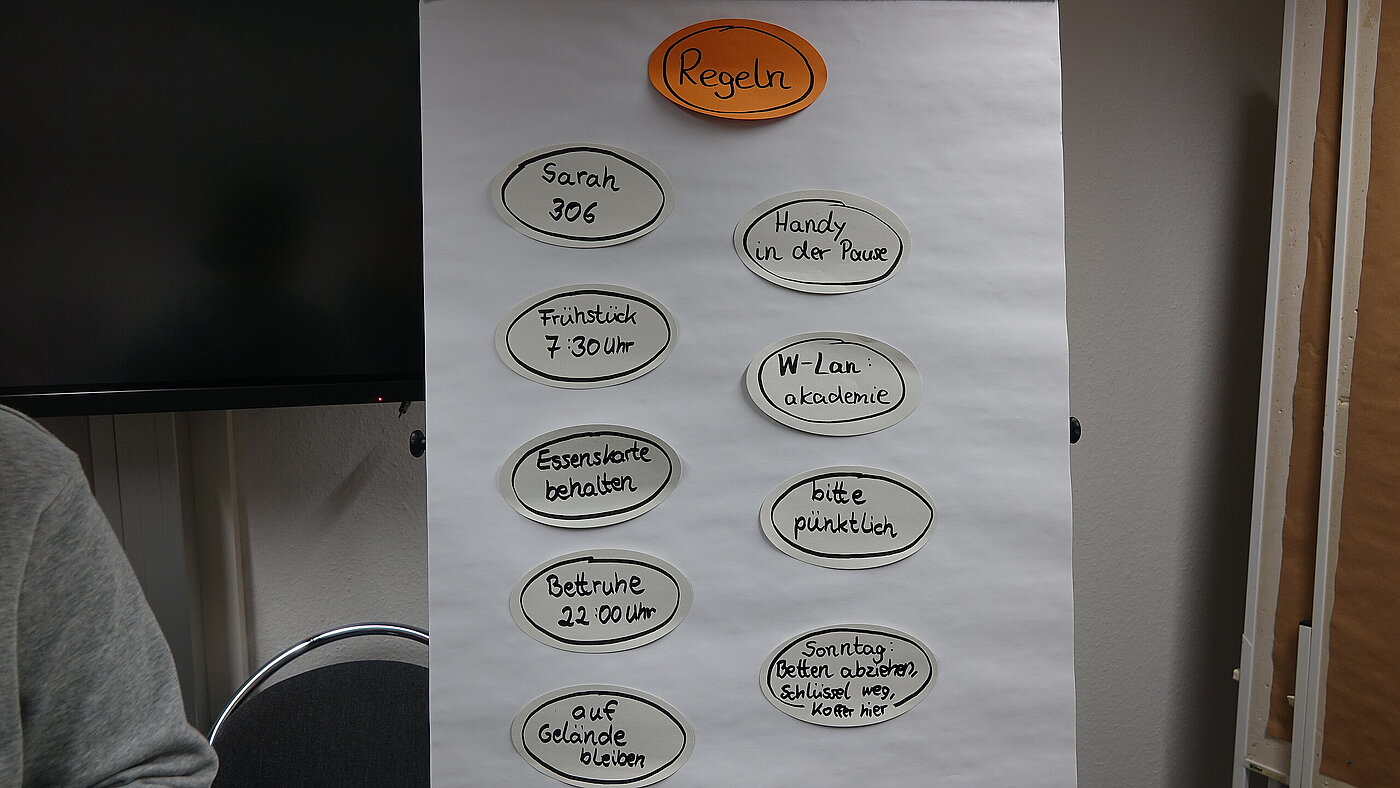 Regeln
Sarah
306
Frühstück
7:30 Uhr
Essenskarte
behalten
Bettruhe
22:00 Uhr
auf
Gelände
bleiben
Handy
in der Pause
W-Lan:
akademie
bitte
pünktlich
Sonntag:
Betten abziehen,
Schlüssel weg,
Koffer hier